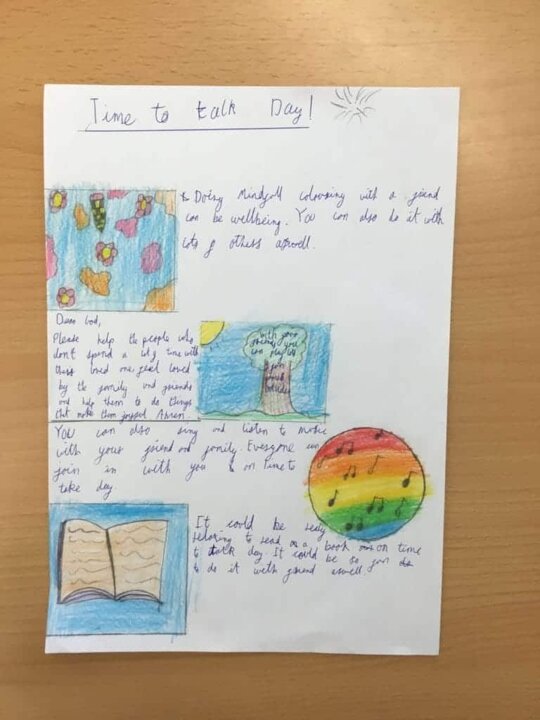 Time to talk Day!
Doing Mindgoll colouring with a friend
can be wellbeing. You can also do it with
lots of others aswell.
Dear God,
Please help the people who
don't spend a lot of time with
loved one, feel loved
by the family and friends
and help them to do things
that make them joyful. Amen.
with your
friends you
can play
YOU can also sing and listen to music
with your friend and family. Everyone can
join in with you on Time to
take day.
It could be realy
relaxing to read a book on time
to talk day. It could be so fun
to do it with friend aswell.